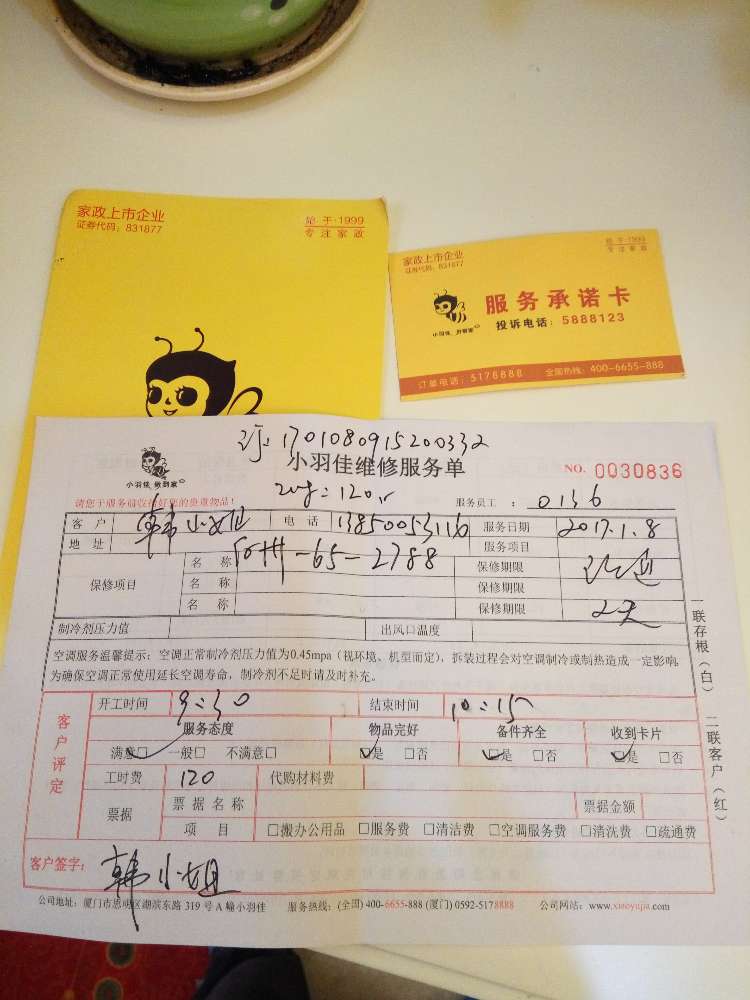 家政上市企业
证券代码：831877
始于·1999
专注家政
家政上市企业
证券代码：831877
始于·1999
专注家政
服务承诺卡
投诉电话：5888123
小羽佳，做到家
订单电话：5178888 全国热线：400-6655-888
1701080915200332
小羽佳维修服务单
NO. 0030836
小羽佳 做到家
请您于服务前收拾好您的贵重物品！
=120
服务员工：0136
客户 韩小姐 电话 13850053116 服务日期 2017.1.8
地址 服务项目
保修项目 名称 -65-2788 保修期限
名称 保修期限
名称 保修期限 2天
制冷剂压力值 出风口温度
空调服务温馨提示：空调正常制冷剂压力值为0.45mpa（视环境、机型而定），拆装过程会对空调制冷或制热造成一定影响，
为确保空调正常使用延长空调寿命，制冷剂不足时请及时补充。
客户评定
开工时间 9:30 结束时间 10:15
服务态度 物品完好 备件齐全 收到卡片
满意☑ 一般□ 不满意□ ☑是 □否 ☑是 □否 ☑是 □否
工时费 120 代购材料费
票据 票据名称 票据金额
项目 □搬办公用品 □服务费 □清洁费 □空调服务费 □清洗费 □疏通费
客户签字：韩小姐
一联存根（白） 二联客户（红）
公司地址：厦门市思明区湖滨东路319号A幢小羽佳 服务热线：(全国) 400-6655-888 (厦门) 0592-5178888 公司网站：www.xiaoyujia.com